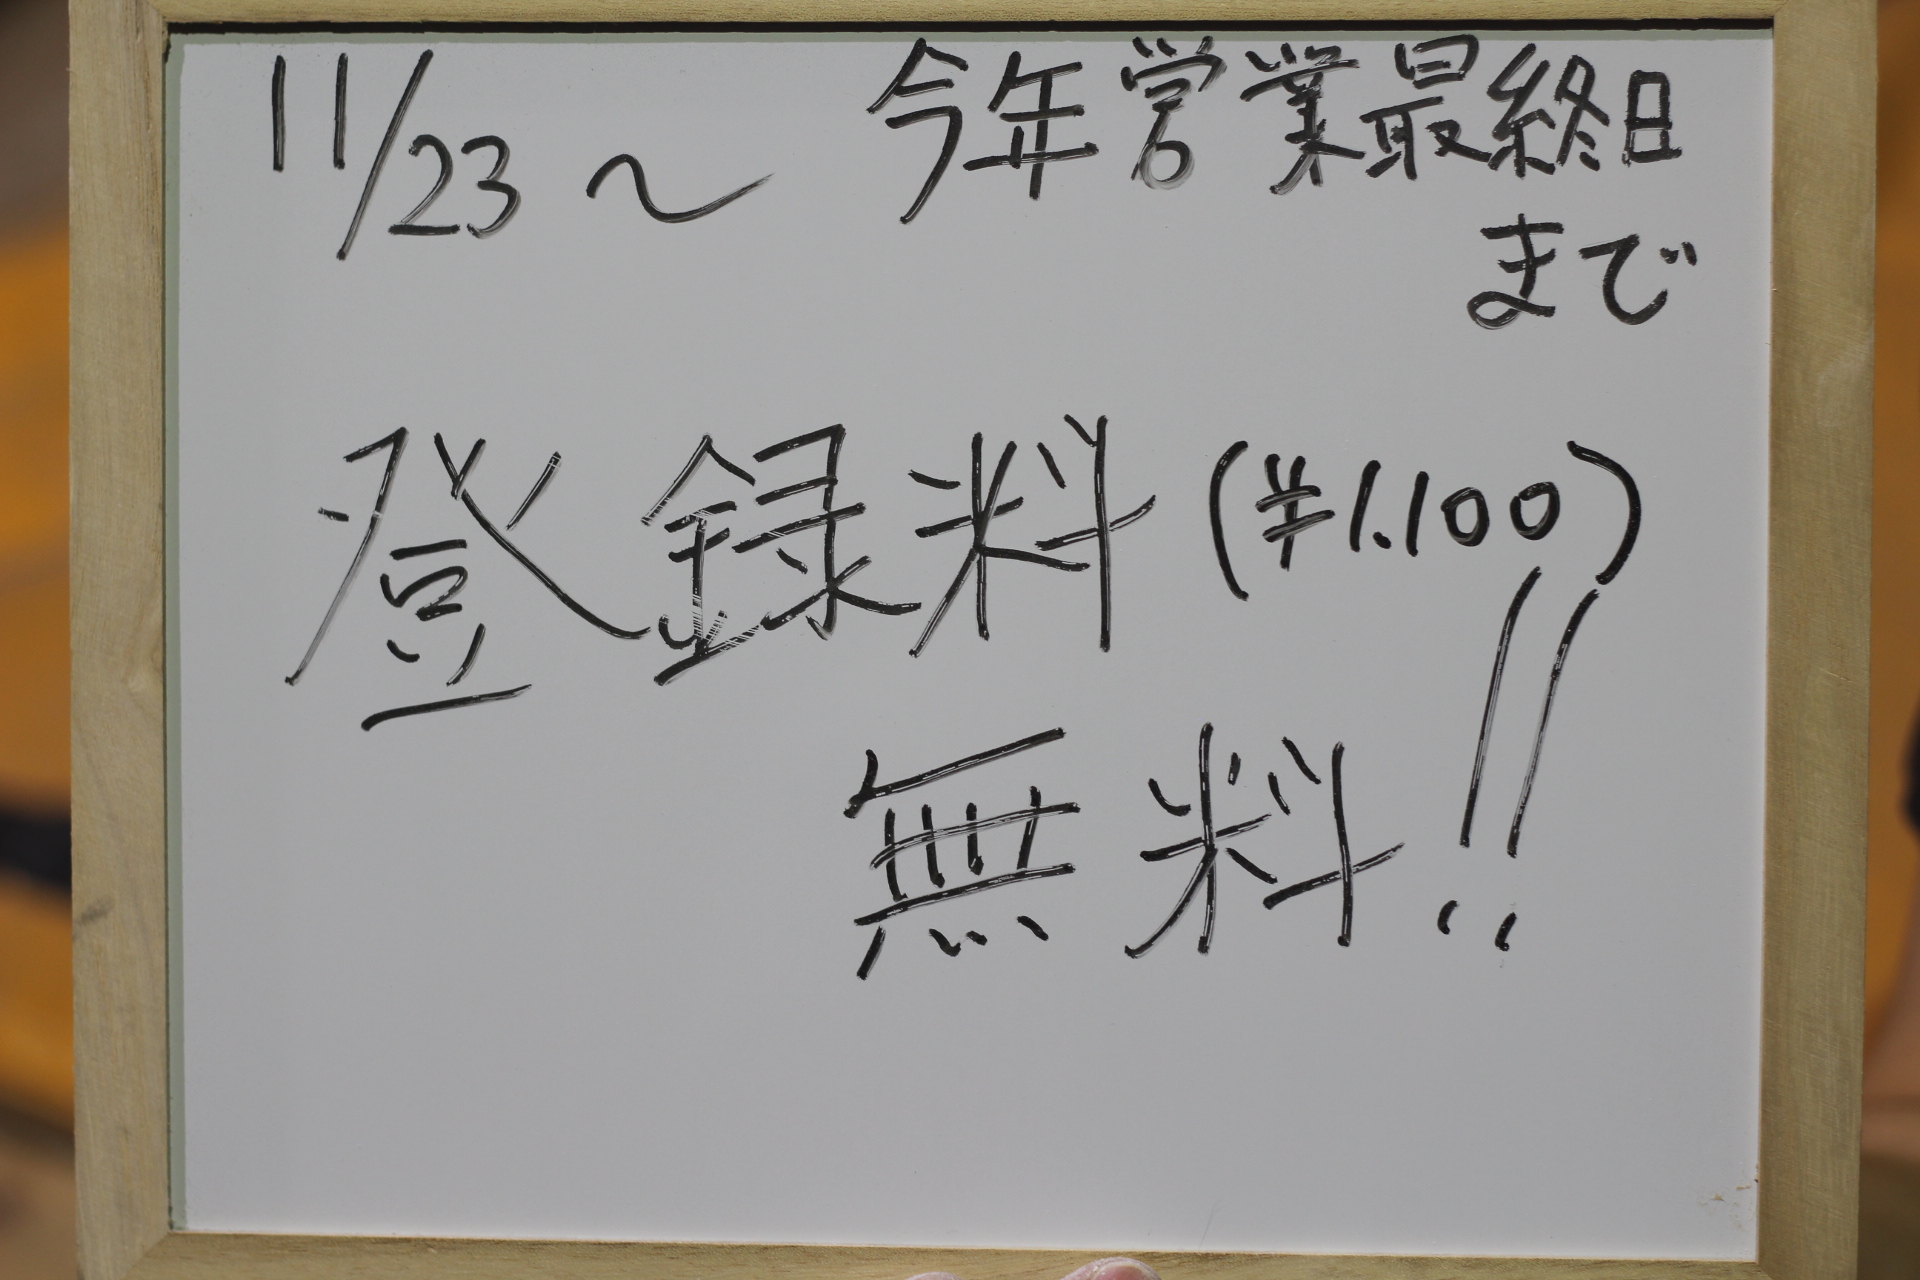 11/23 ～ 今年営業最終日
まで
登録料(¥1.100)
無料!!